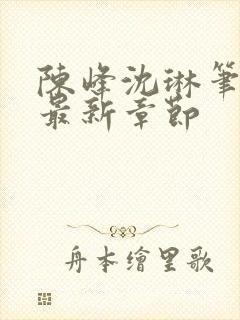 陳峰沈琳筆
最新章節
舟本繪里歌